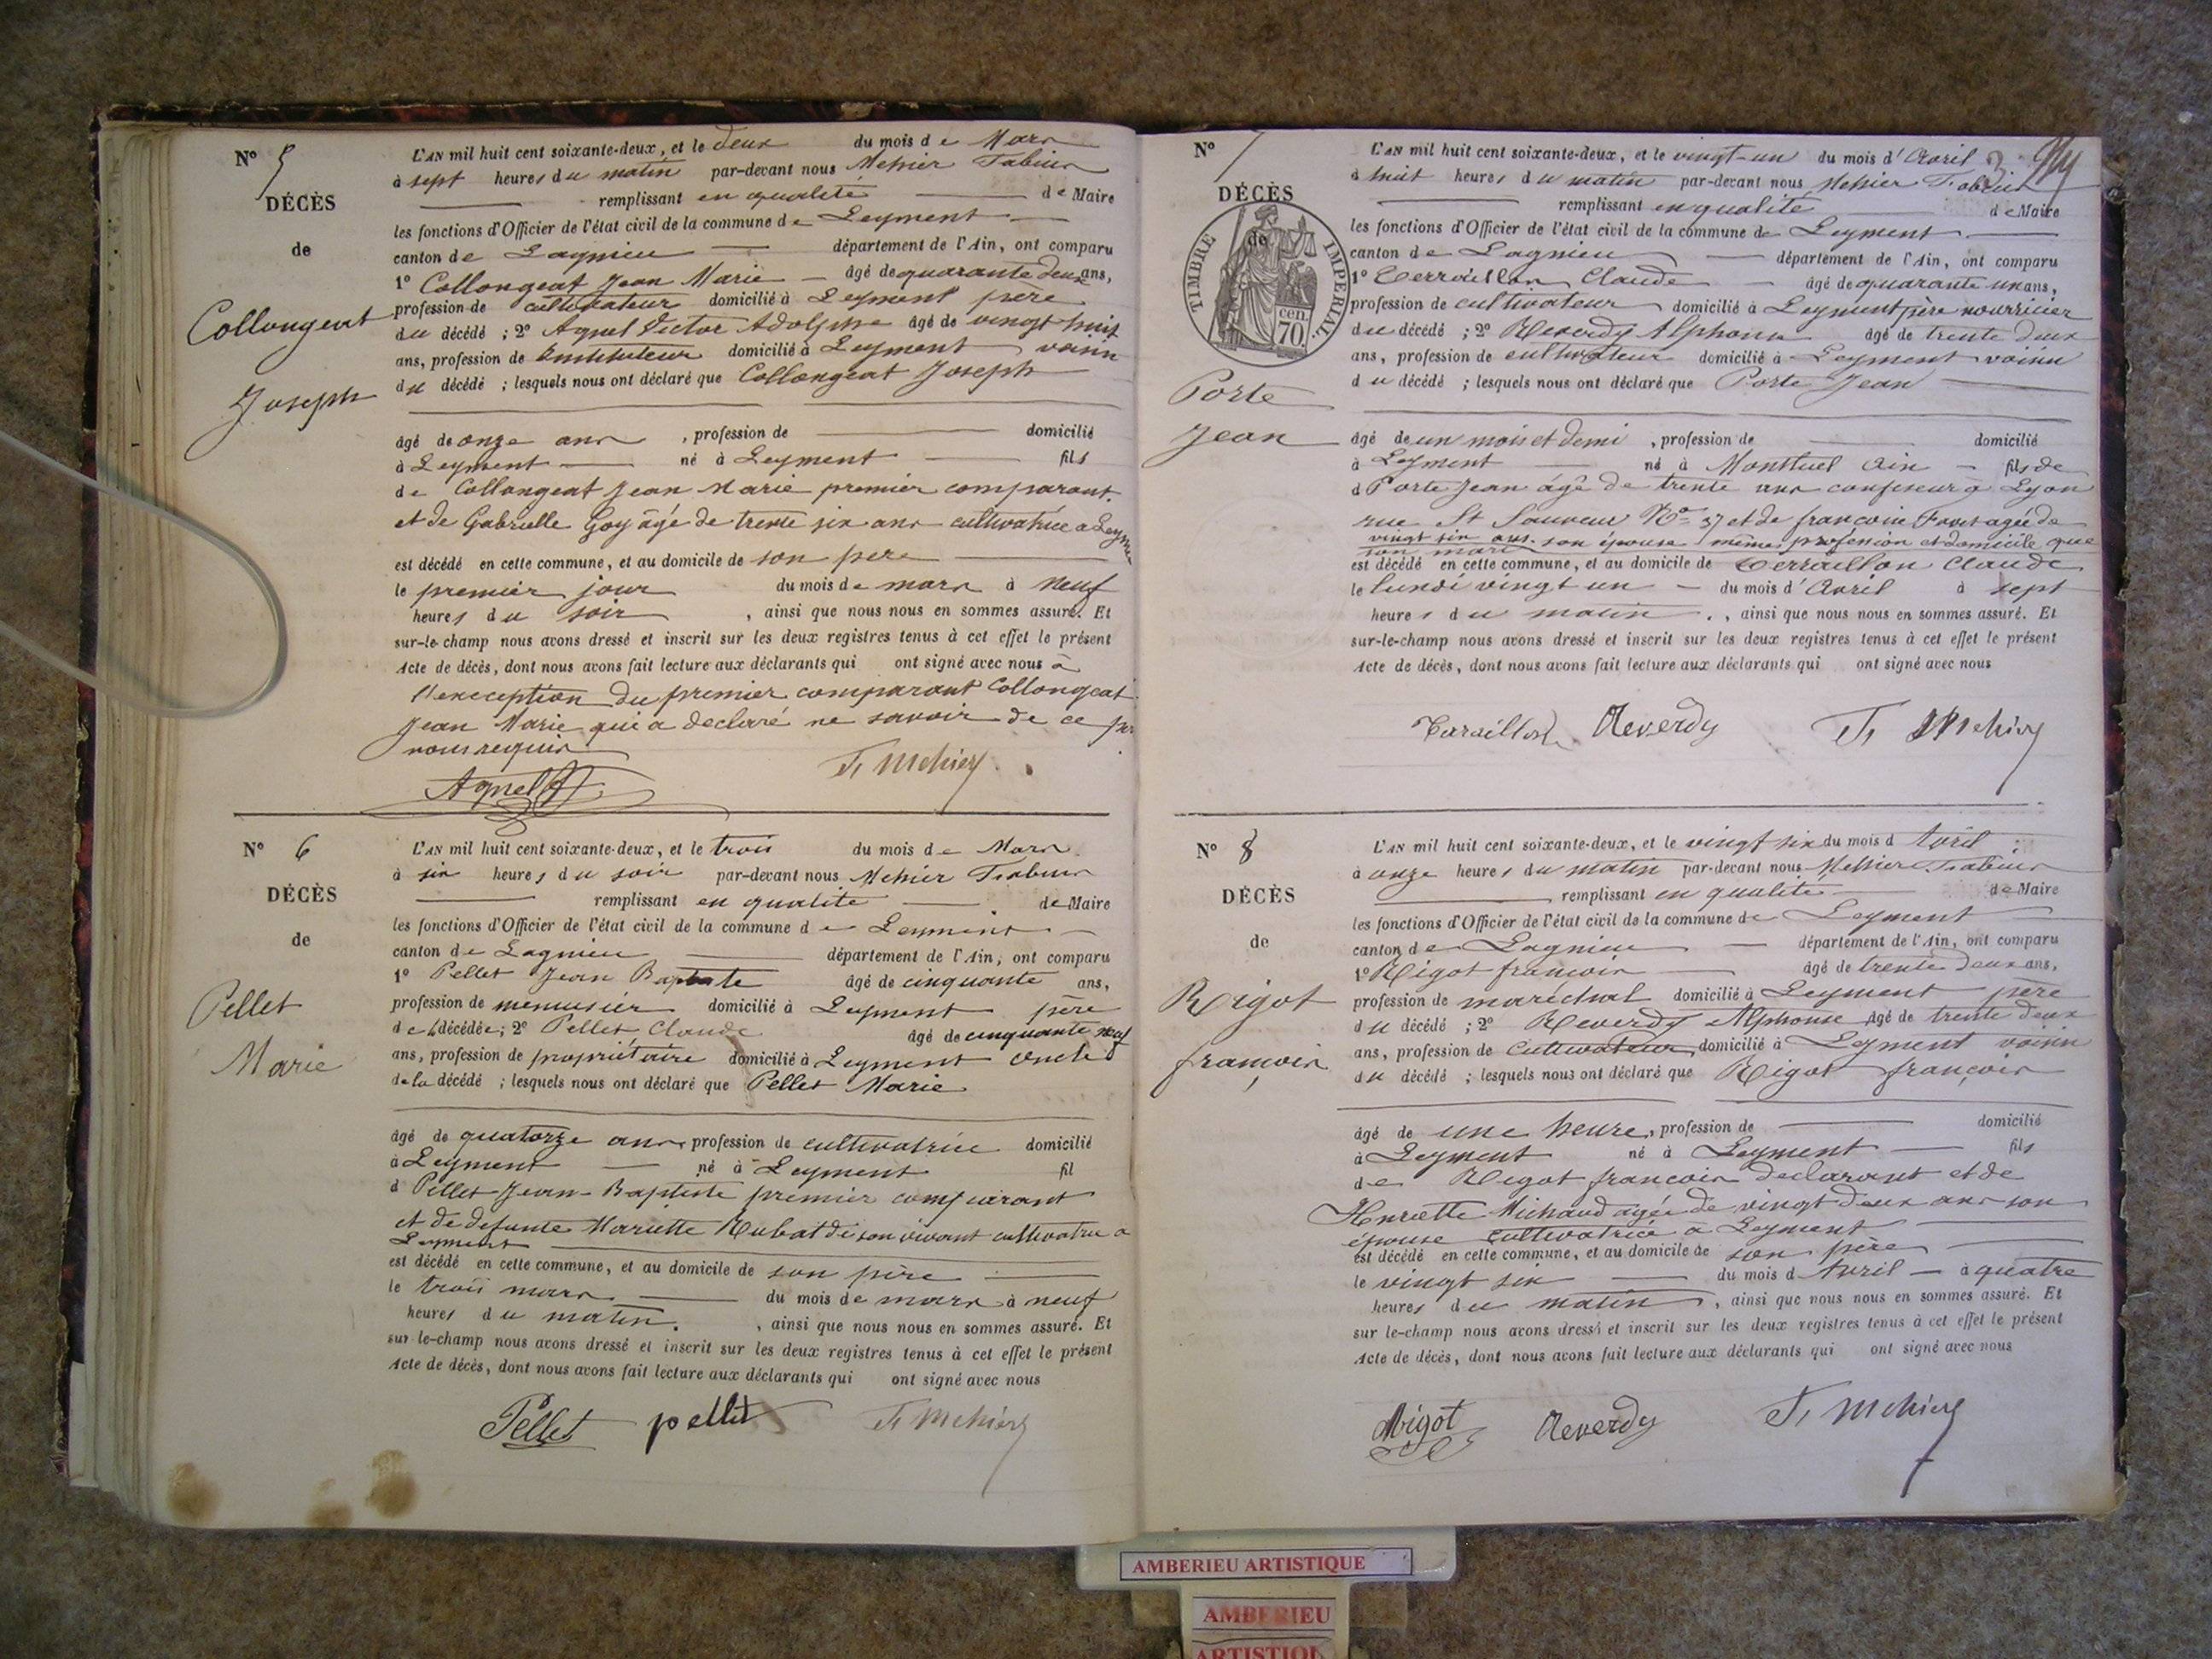 N° 5
DÉCÈS
de
Collongeat
Joseph
L'AN mil huit cent soixante-deux, et le deux du mois de Mars
à sept heures du matin par-devant nous Mehier Fabien
remplissant en qualité de Maire
les fonctions d'Officier de l'état civil de la commune de Leyment
canton de Lagnieu département de l'Ain, ont comparu
1° Collongeat Jean Marie âgé de quarante deux ans,
profession de cultivateur domicilié à Leyment père
du décédé ; 2° Agnel Victor Adolphe âgé de vingt huit
ans, profession de Instituteur domicilié à Leyment voisin
du décédé ; lesquels nous ont déclaré que Collongeat Joseph
âgé de onze ans , profession de domicilié
à Leyment né à Leyment fils
de Collongeat Jean Marie premier comparant
et de Gabrielle Goy âgé de trente six ans cultivatrice a Leyment
est décédé en cette commune, et au domicile de son père
le premier jour du mois de mars à neuf
heures du soir , ainsi que nous nous en sommes assuré. Et
sur-le-champ nous avons dressé et inscrit sur les deux registres tenus à cet effet le présent
Acte de décès, dont nous avons fait lecture aux déclarants qui ont signé avec nous à
l'exeception du premier comparant Collongeat
Jean Marie qui a declaré ne savoir de ce
nous requis
Agnel F. Mehier
N° 6
DÉCÈS
de
Pellet
Marie
L'AN mil huit cent soixante-deux, et le trois du mois de Mars
à six heures du soir par-devant nous Mehier Fabien
remplissant en qualité de Maire
les fonctions d'Officier de l'état civil de la commune de Leyment
canton de Lagnieu département de l'Ain, ont comparu
1° Pellet Jean Baptiste âgé de cinquante ans,
profession de menuisier domicilié à Leyment père
de la décédée; 2° Pellet Claude âgé de cinquante neuf
ans, profession de propriétaire domicilié à Leyment oncle
de la décédé ; lesquels nous ont déclaré que Pellet Marie
âgé de quatorze ans, profession de cultivatrice domicilié
à Leyment né à Leyment fil
d Pellet Jean-Baptiste premier comparant
et de defunte Mariette Rubat de son vivant cultivatrice a
Leyment
est décédé en cette commune, et au domicile de son père
le trois mars du mois de mars à neuf
heures du matin. , ainsi que nous nous en sommes assuré. Et
sur-le-champ nous avons dressé et inscrit sur les deux registres tenus à cet effet le présent
Acte de décès, dont nous avons fait lecture aux déclarants qui ont signé avec nous
Pellet pellet F. Mehier
N° 7
DÉCÈS
de
TIMBRE IMPÉRIAL
70 cen.
Porte
Jean
L'AN mil huit cent soixante-deux, et le vingt-un du mois d'Avril 3
à huit heures du matin par-devant nous Mehier Fabien
remplissant en qualité de Maire
les fonctions d'Officier de l'état civil de la commune de Leyment
canton de Lagnieu département de l'Ain, ont comparu
1° Terraillon Claude âgé de quarante un ans,
profession de cultivateur domicilié à Leyment père nourricier
du décédé ; 2° Reverdy Alphonse âgé de trente deux
ans, profession de cultivateur domicilié à Leyment voisin
du décédé ; lesquels nous ont déclaré que Porte Jean
âgé de un mois et demi , profession de domicilié
à Leyment né à Montluel Ain fils de
d Porte Jean âgé de trente ans confiseur à Lyon
rue St Sauveur N° 37 et de françoise agée de
vingt six ans. son épouse même profession et domicile que
son mari
est décédé en cette commune, et au domicile de Terraillon Claude
le lundi vingt un du mois d'Avril à sept
heures du matin , ainsi que nous nous en sommes assuré. Et
sur-le-champ nous avons dressé et inscrit sur les deux registres tenus à cet effet le présent
Acte de décès, dont nous avons fait lecture aux déclarants qui ont signé avec nous
Terraillon Reverdy F. Mehier
N° 8
DÉCÈS
de
Rigot
françois
L'AN mil huit cent soixante-deux, et le vingt six du mois d Avril
à onze heures du matin par-devant nous Mehier Fabien
remplissant en qualité de Maire
les fonctions d'Officier de l'état civil de la commune de Leyment
canton de Lagnieu département de l'Ain, ont comparu
1° Rigot françois âgé de trente deux ans,
profession de maréchal domicilié à Leyment père
du décédé ; 2° Reverdy Alphonse âgé de trente deux
ans, profession de Cultivateur domicilié à Leyment voisin
du décédé ; lesquels nous ont déclaré que Rigot françois
âgé de une heure, profession de domicilié
à Leyment né à Leyment fils
de Rigot françois declarant et de
Henriette Michaud agée de vingt deux ans son
épouse cultivatrice a Leyment
est décédé en cette commune, et au domicile de son père
le vingt six du mois d Avril à quatre
heures du matin , ainsi que nous nous en sommes assuré. Et
sur le-champ nous avons dressé et inscrit sur les deux registres tenus à cet effet le présent
Acte de décès, dont nous avons fait lecture aux déclarants qui ont signé avec nous
Rigot Reverdy F. Mehier
AMBERIEU ARTISTIQUE
AMBERIEU
ARTISTIQ